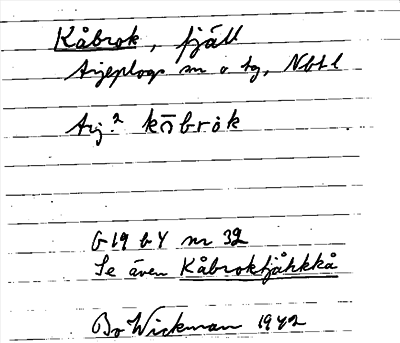 Kåbrok, fjäll
Arjeplogs sn o tg, Nbtl
Arj.² kōbrok
G 19 b Y nr 32
Se även Kåbroktjåhkkå
Bo Wickman 1942